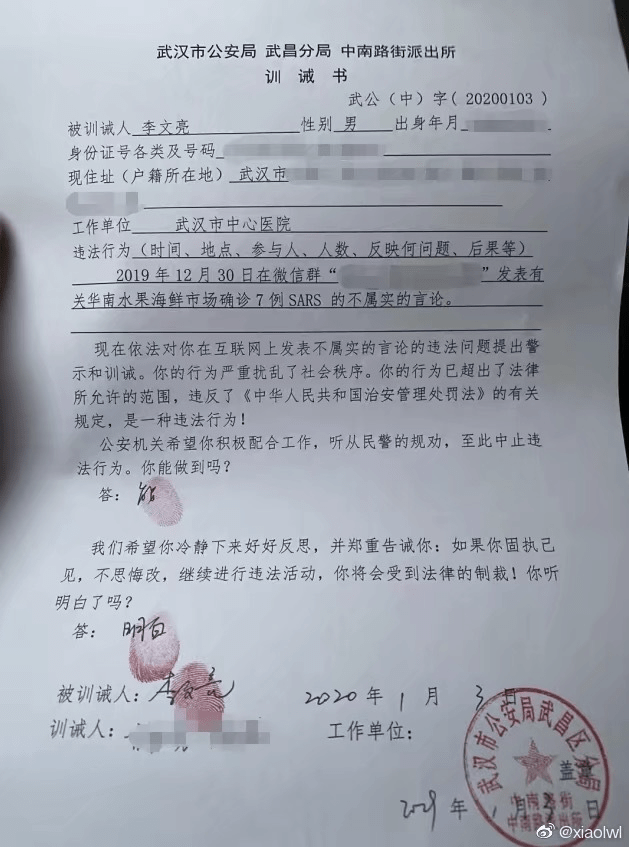 武汉市公安局 武昌分局 中南路街派出所
训诫书
武公（中）字（20200103）
被训诫人 李文亮 性别 男 出身年月
身份证号各类及号码
现住址（户籍所在地） 武汉市
工作单位 武汉市中心医院
违法行为（时间、地点、参与人、人数、反映何问题、后果等）
2019年12月30日在微信群“ ”发表有
关华南水果海鲜市场确诊7例SARS的不属实的言论。
现在依法对你在互联网上发表不属实的言论的违法问题提出警
示和训诫。你的行为严重扰乱了社会秩序。你的行为已超出了法律
所允许的范围，违反了《中华人民共和国治安管理处罚法》的有关
规定，是一种违法行为！
公安机关希望你积极配合工作，听从民警的规劝，至此中止违
法行为。你能做到吗？
答：能
我们希望你冷静下来好好反思，并郑重告诫你：如果你固执己
见，不思悔改，继续进行违法活动，你将会受到法律的制裁！你听
明白了吗？
答：明白
被训诫人：李文亮 2020年1月3日
训诫人： 工作单位：
武汉市公安局武昌区分局
盖章
中南路街
中南路派出所
年1月3日
@xiaolwl